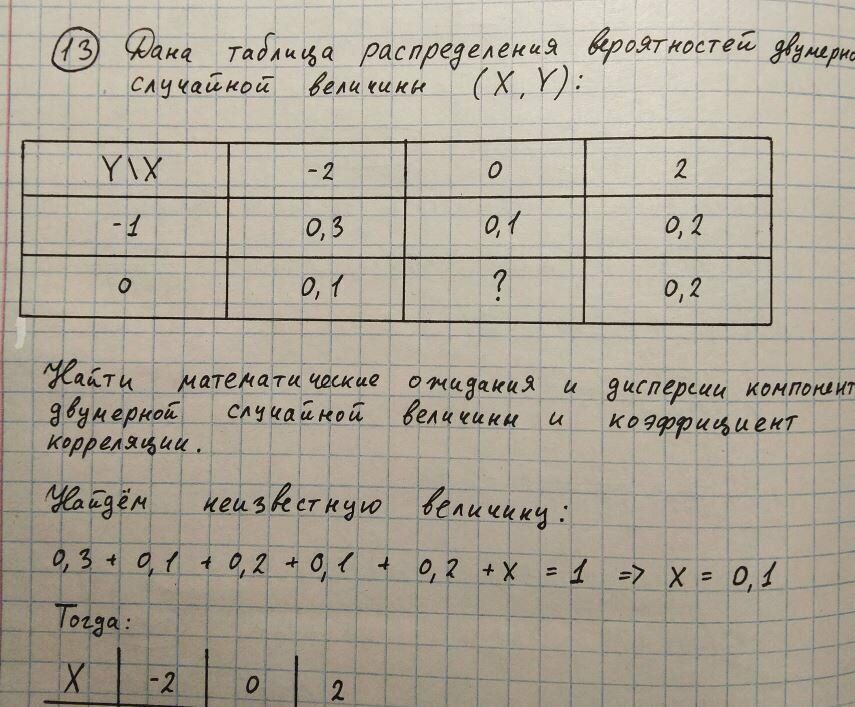 13 Дана таблица распределения вероятностей двумерно
случайной величины (X, Y):
Y\X -2 0 2
-1 0,3 0,1 0,2
0 0,1 ? 0,2
Найти математические ожидания и дисперсии компонент
двумерной случайной величины и коэффициент
корреляции.
Найдём неизвестную величину:
0,3 + 0,1 + 0,2 + 0,1 + 0,2 + x = 1 => x = 0,1
Тогда:
X -2 0 2